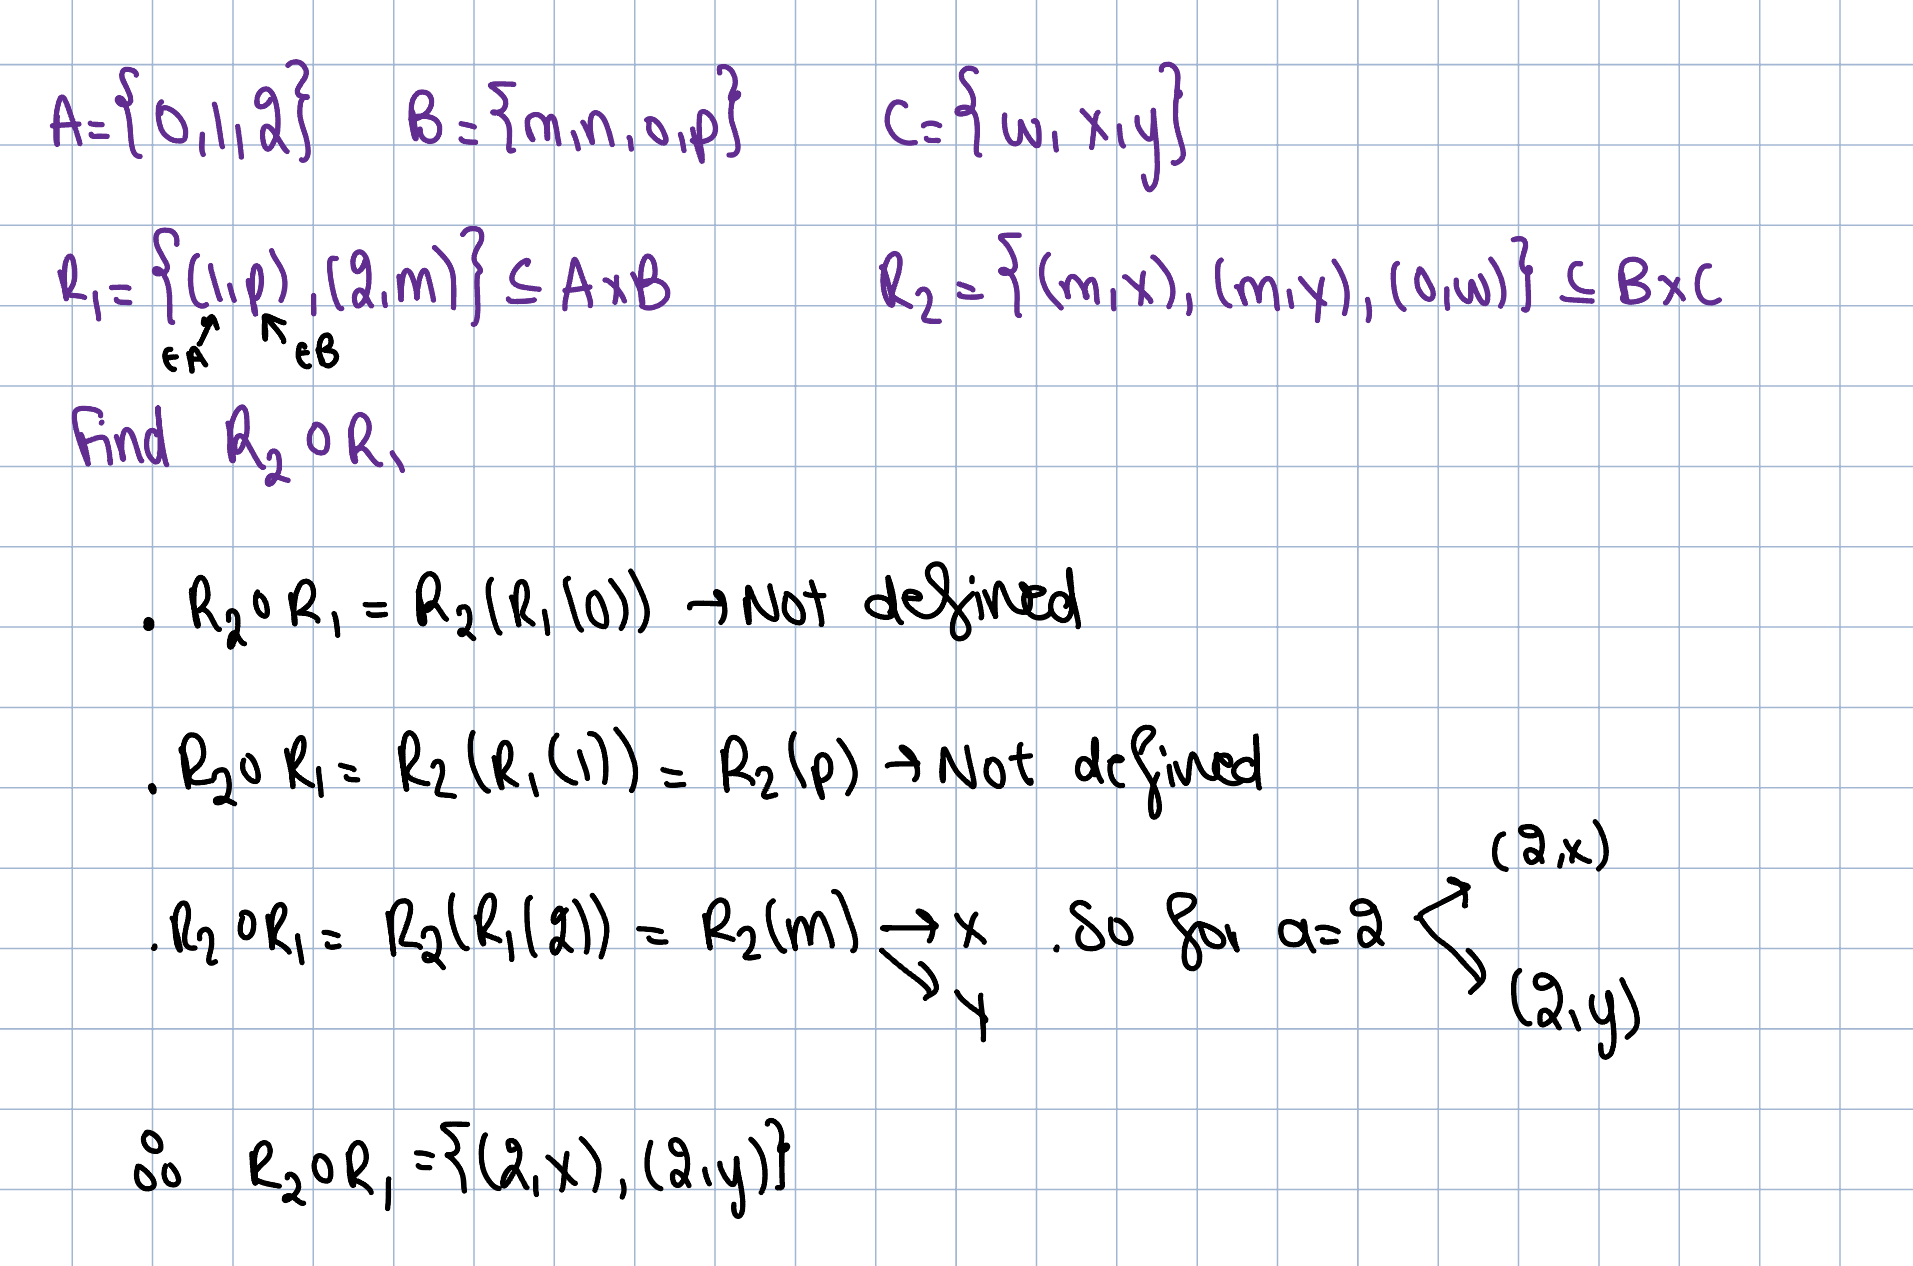 A={0,1,2} B={m,n,o,p} C={w,x,y}
R₁={(1,p),(2,m)}⊆A×B R₂={(m,x),(m,y),(o,w)}⊆B×C
∈A ∈B
Find R₂∘R₁
. R₂∘R₁=R₂(R₁(0)) → Not defined
. R₂∘R₁=R₂(R₁(1))=R₂(p) → Not defined
(2,x)
. R₂∘R₁=R₂(R₁(2))=R₂(m) → x . So for a=2
y (2,y)
∴ R₂∘R₁={(2,x),(2,y)}